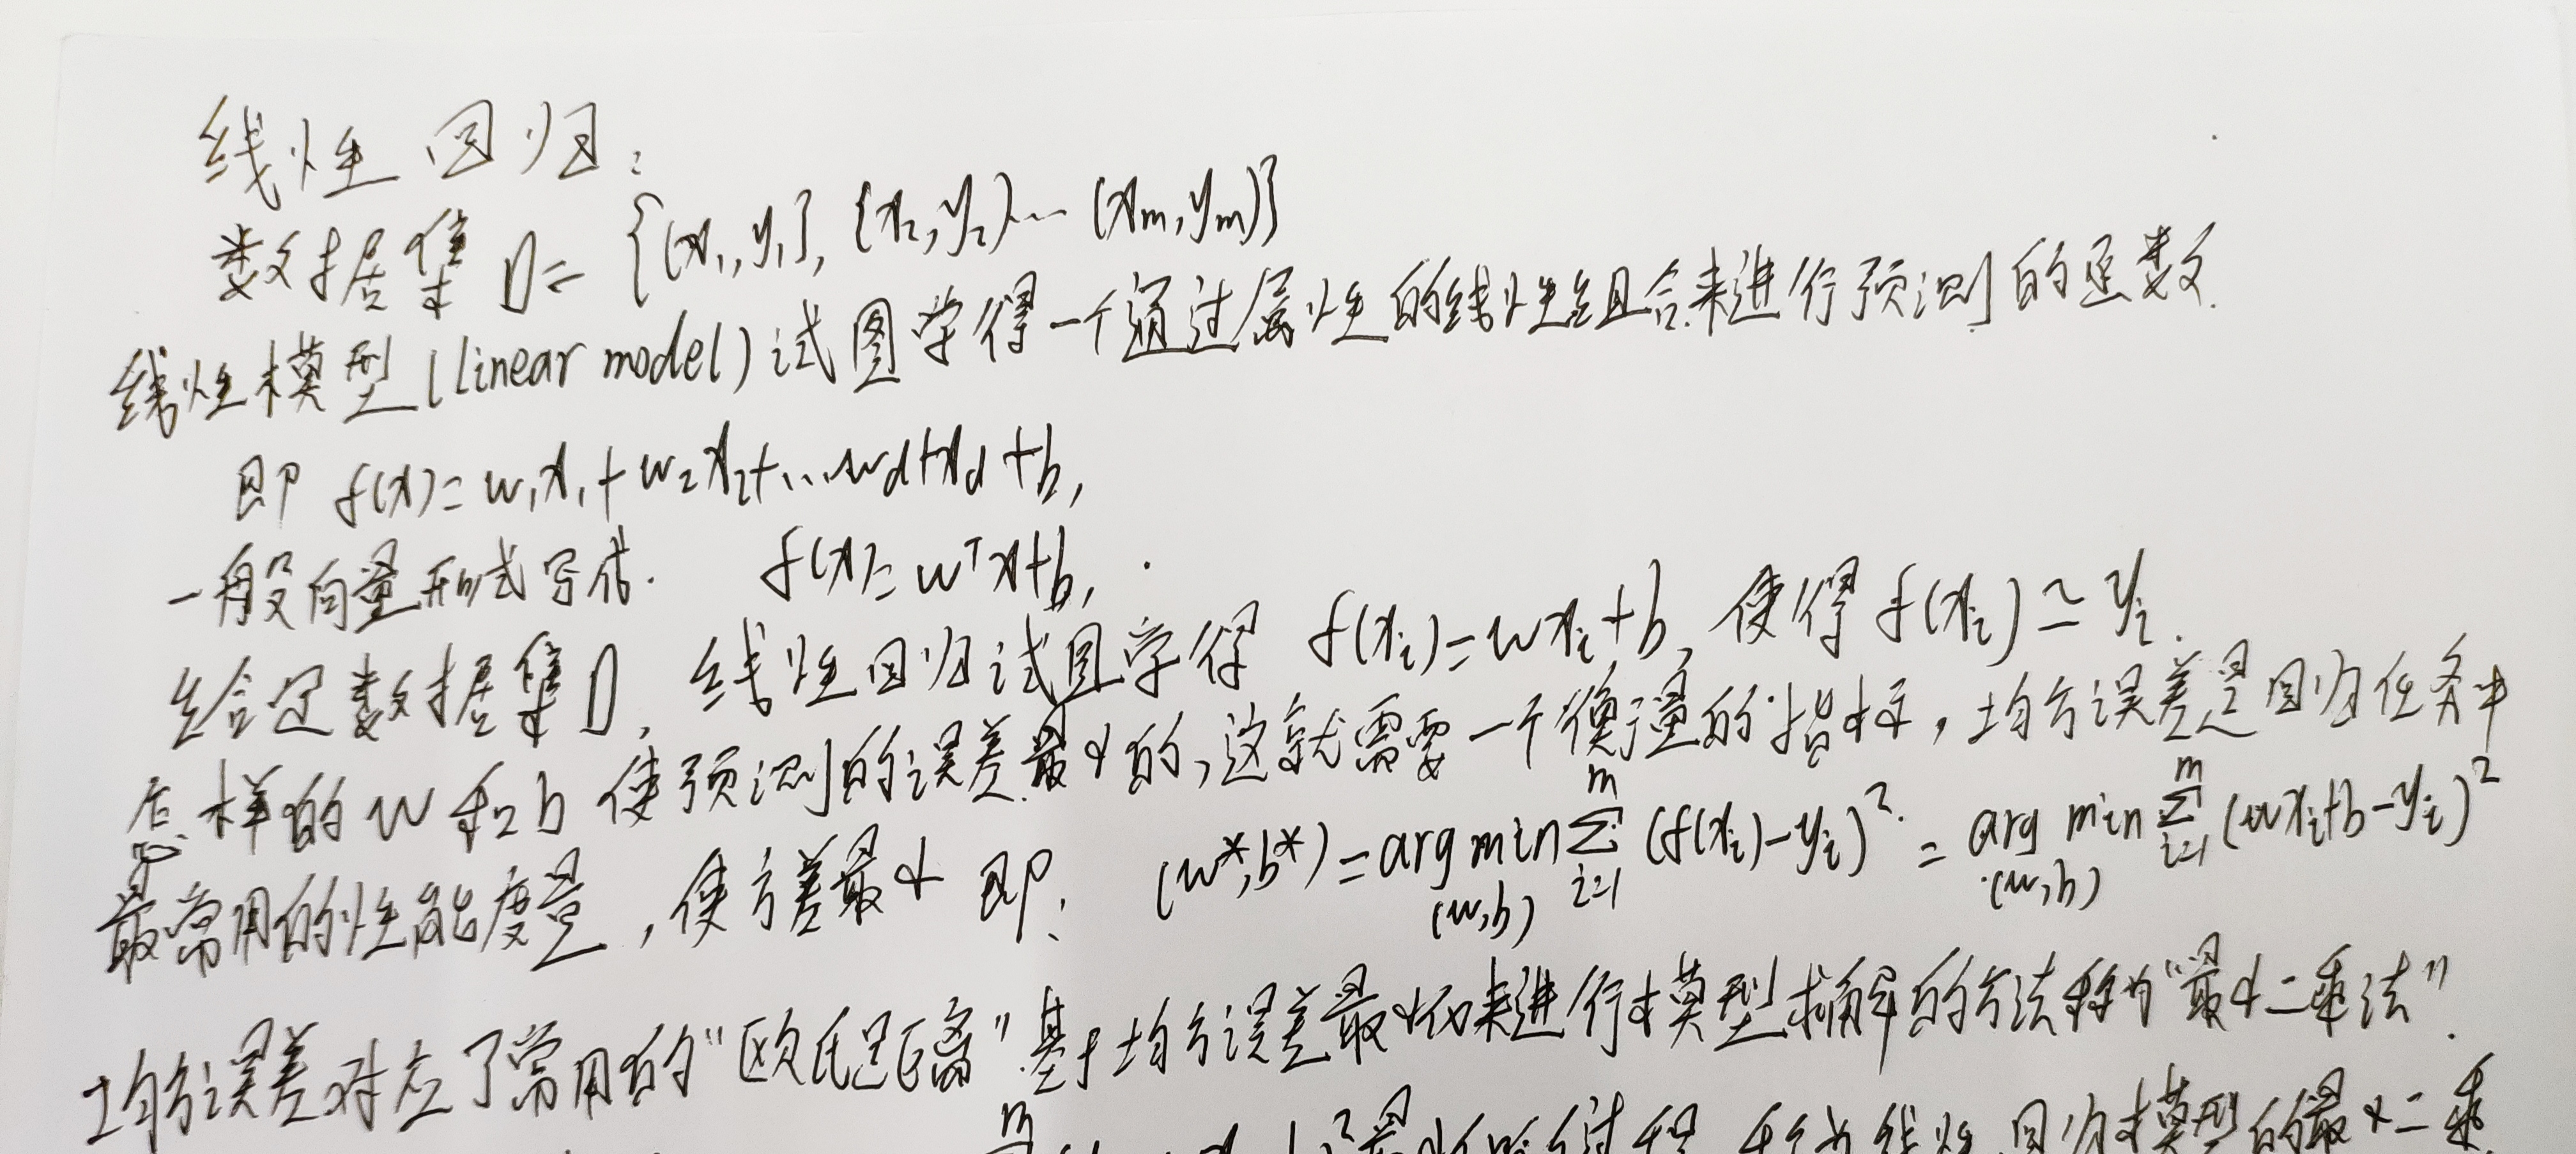 线性回归:
数据集 D = {(x₁,y₁], {x₂,y₂)... (xₘ,yₘ)}
线性模型(linear model)试图学得一个通过属性的线性组合来进行预测的函数.
即 f(x)=w₁x₁+w₂x₂+...wd+xd+b,
一般向量形式写作. f(x)=wᵀx+b,.
给定数据集D, 线性回归试图学得 f(xᵢ)=wxᵢ+b, 使得 f(xᵢ)≃yᵢ.
怎样的w和b使预测的误差最小的,这就需要一个衡量的指标,均方误差是回归任务中
最常用的性能度量,使方差最小 即: (w*,b*)=arg min(w,b) Σᵢ₌₁ᵐ (f(xᵢ)-yᵢ)² = arg min(w,b) Σᵢ₌₁ᵐ (wxᵢ+b-yᵢ)²
均方误差对应了常用的"欧氏距离".基于均方误差最小化来进行模型求解的方法称为"最小二乘法".
称为线性回归模型的最小二乘